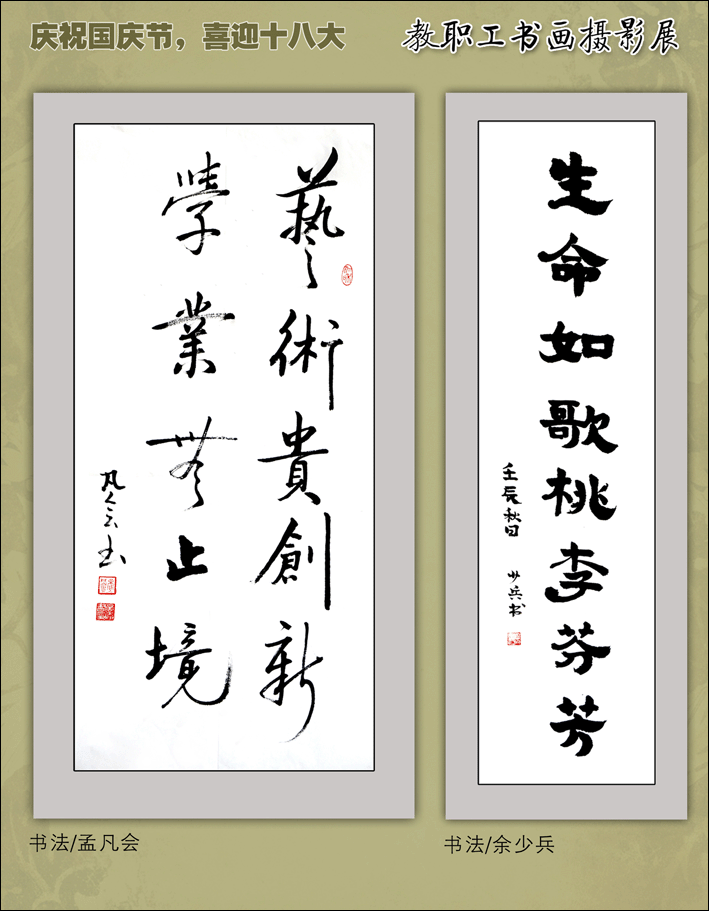 庆祝国庆节，喜迎十八大
教职工书画摄影展
藝術貴創新
學業無止境
凡会书
生命如歌桃李芬芳
壬辰秋日 少兵书
书法/孟凡会
书法/余少兵